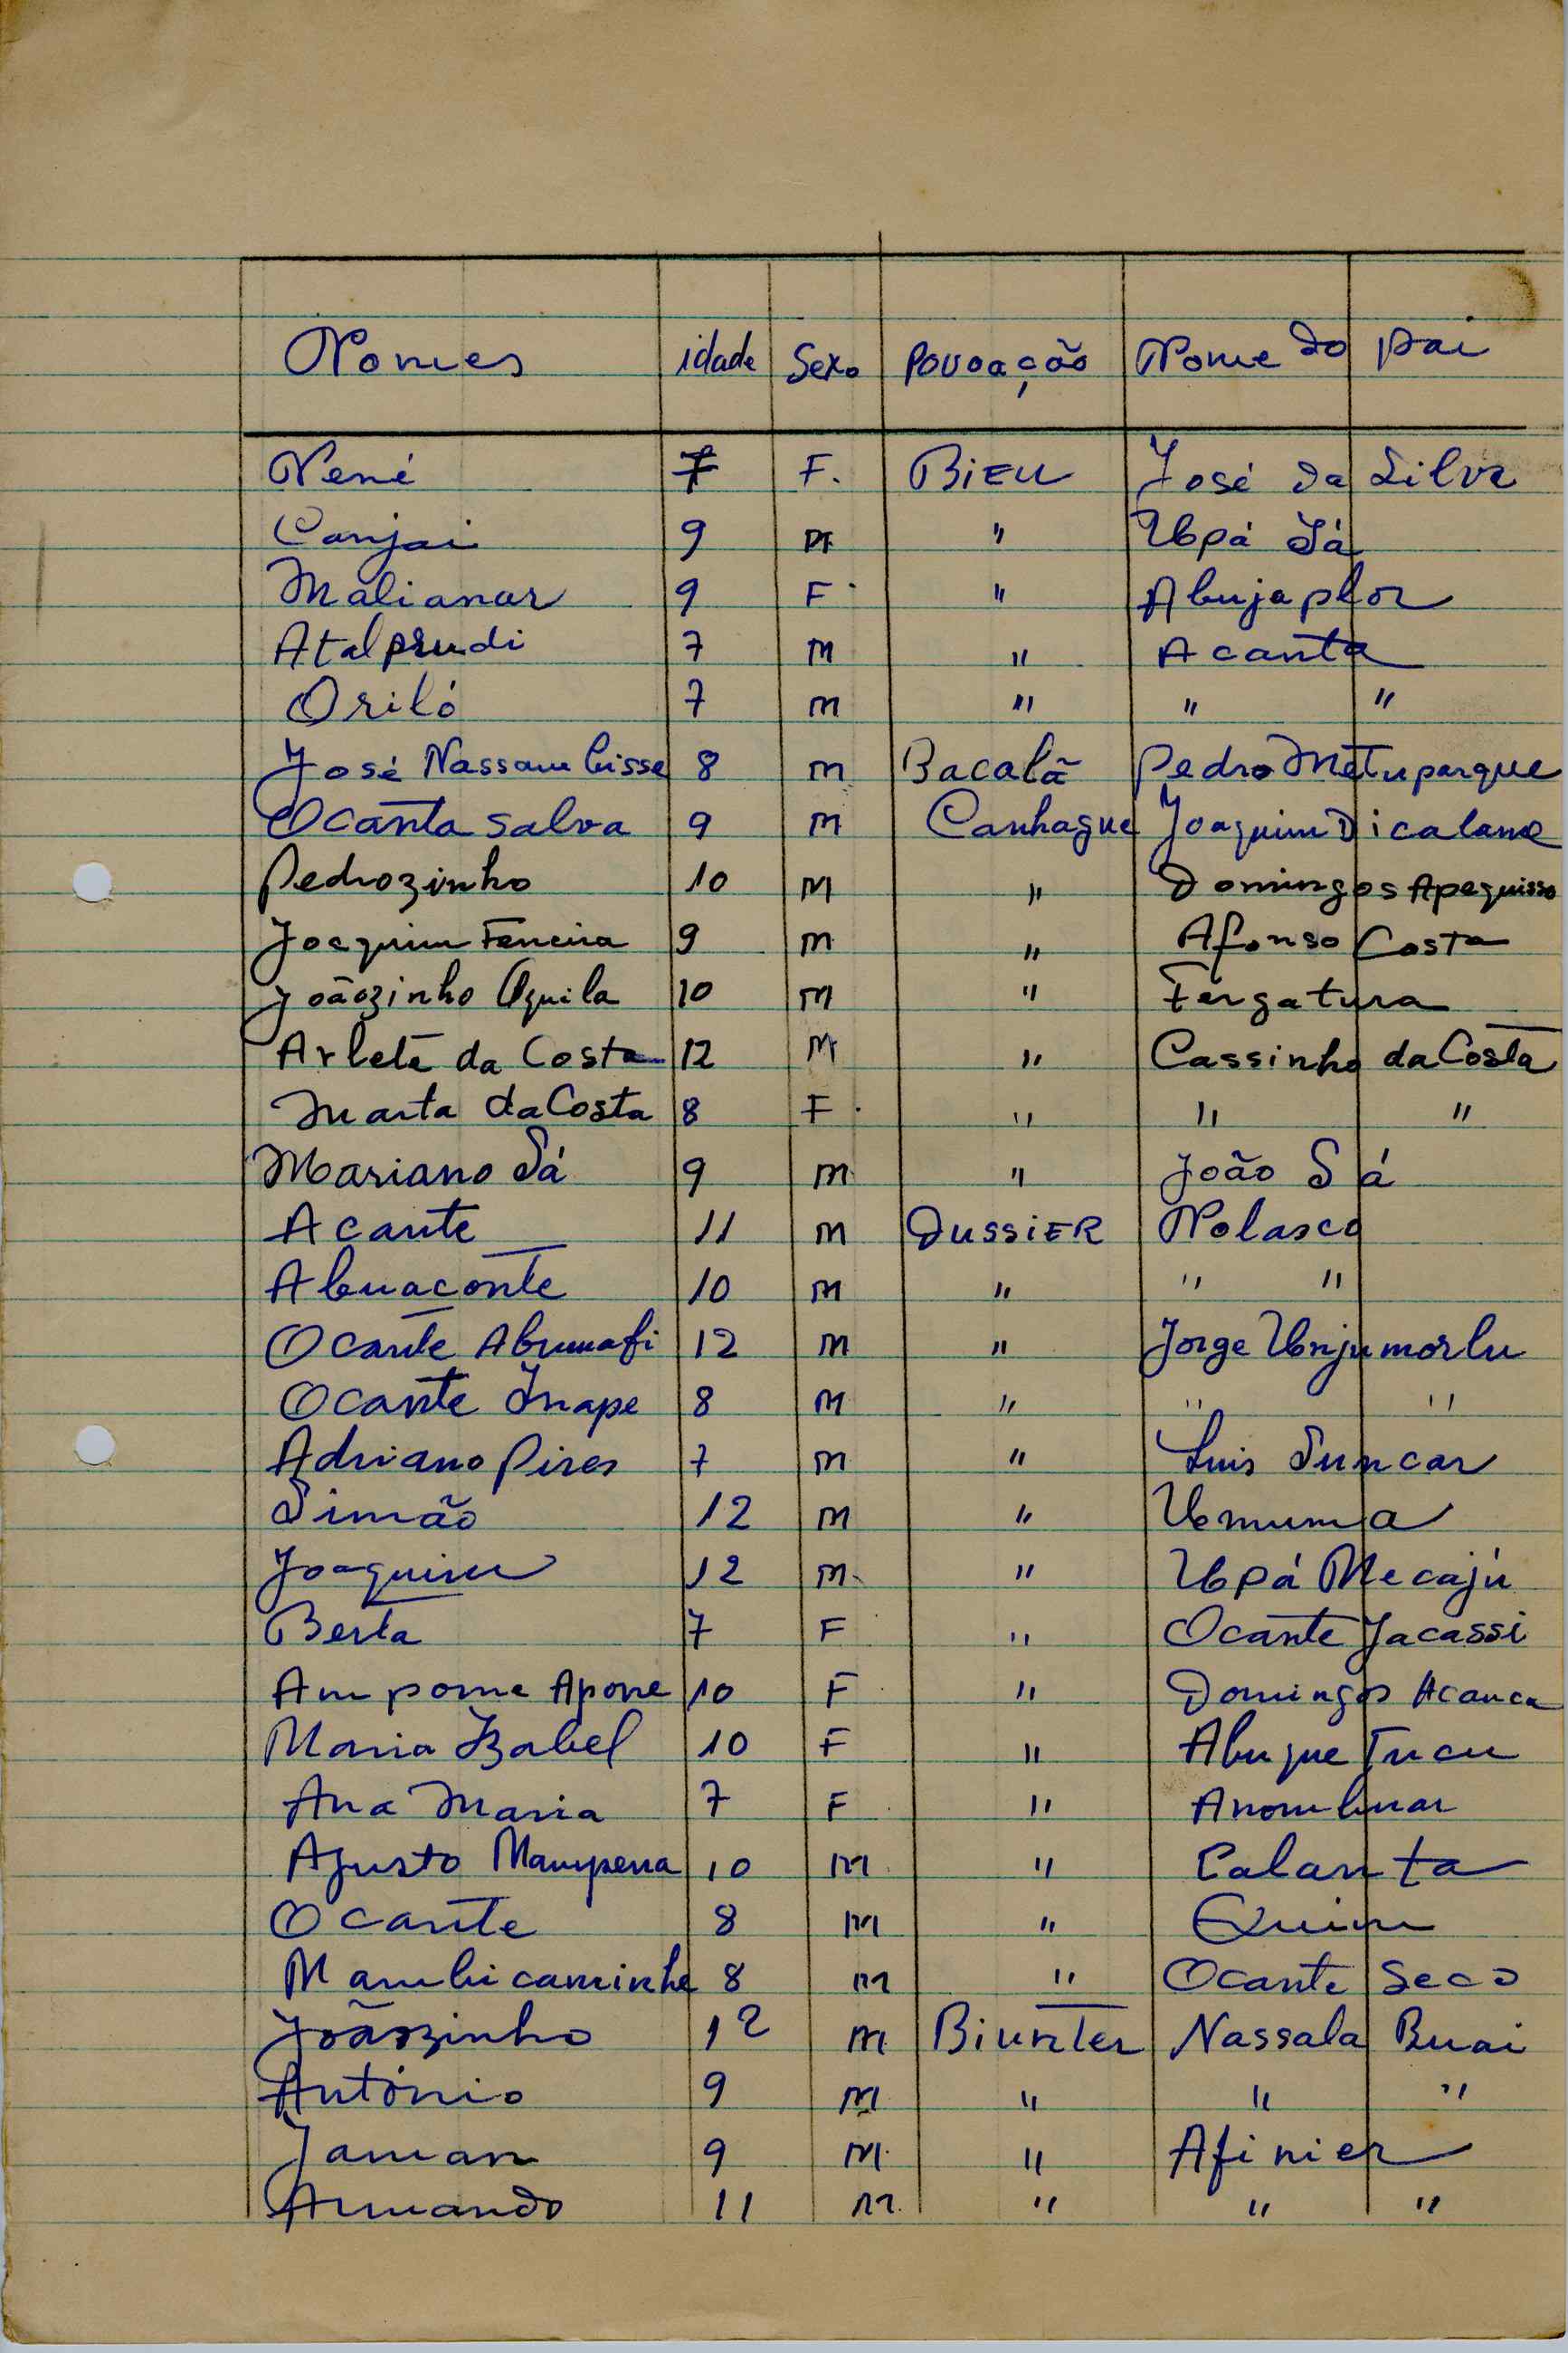 Nomes idade Sexo Povoação Nome do pai
Nené 7 F. BiEU José da Silva
Canjai 9 M " Upá Sá
Malianar 9 F " Abujaplor
Atalprudi 7 m " Acanta
Oriló 7 m " " "
José Nassambisse 8 m Bacalã Pedro Metuparque
Ocanta salva 9 m Canhague Joaquim Dicalame
Pedrozinho 10 M " Domingos Apequisso
Joaquim Ferreira 9 m " Afonso Costa
Joãozinho Aquila 10 m " Fergatura
Arlete da Costa 12 M " Cassinho da Costa
Marta da Costa 8 F " " "
Mariano Sá 9 m " João Sá
Acante 11 m DussiER Nolasco
Abuaconte 10 m " " "
Ocante Abumafi 12 m " Jorge Unjumorlu
Ocante Inape 8 m " " "
Adriano Pires 7 m " Luis Suncar
Simão 12 m " Umuma
Joaquim 12 m " Upá Mecajú
Berta 7 F " Ocante Jacassi
Ampome Apone 10 F " Domingos Acanca
Maria Izabel 10 F " Abuque Tucu
Ana Maria 7 F " Anombuar
Agusto Mampena 10 m " Calanta
Ocante 8 m " Quim
Mambicaminhe 8 m " Ocante Seco
Joãozinho 12 m Biunter Nassala Buai
António 9 m " " "
Jaman 9 m " Afinier
Armando 11 m " " "